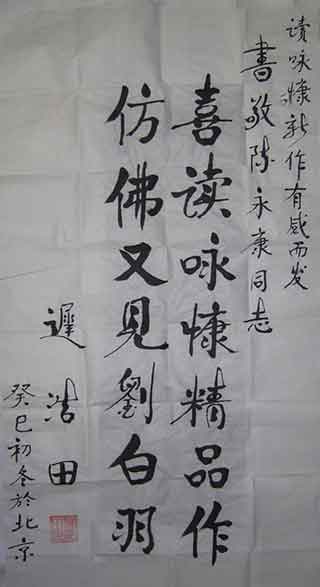 读咏慷新作有感而发
书敬陈永康同志
喜读咏慷精品作
仿佛又见劉白羽
遲浩田
癸巳初冬於北京